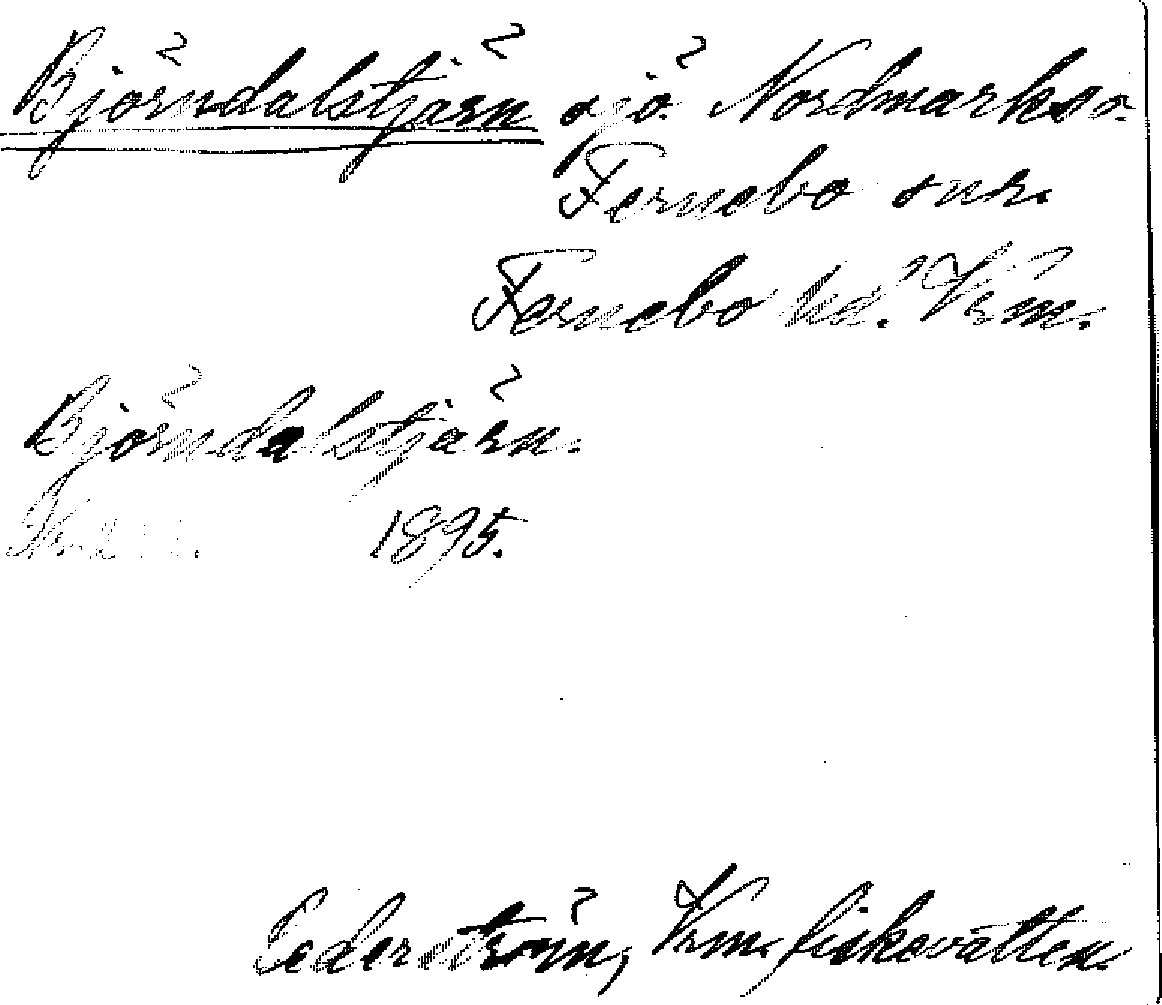 Björndalstjärn sjö. Nordmarks s.
Fernebo snr.
Fernebo hd. Vrm.
Björndalstjärn.
1895.
Cederström, Vrm. fiskevatten